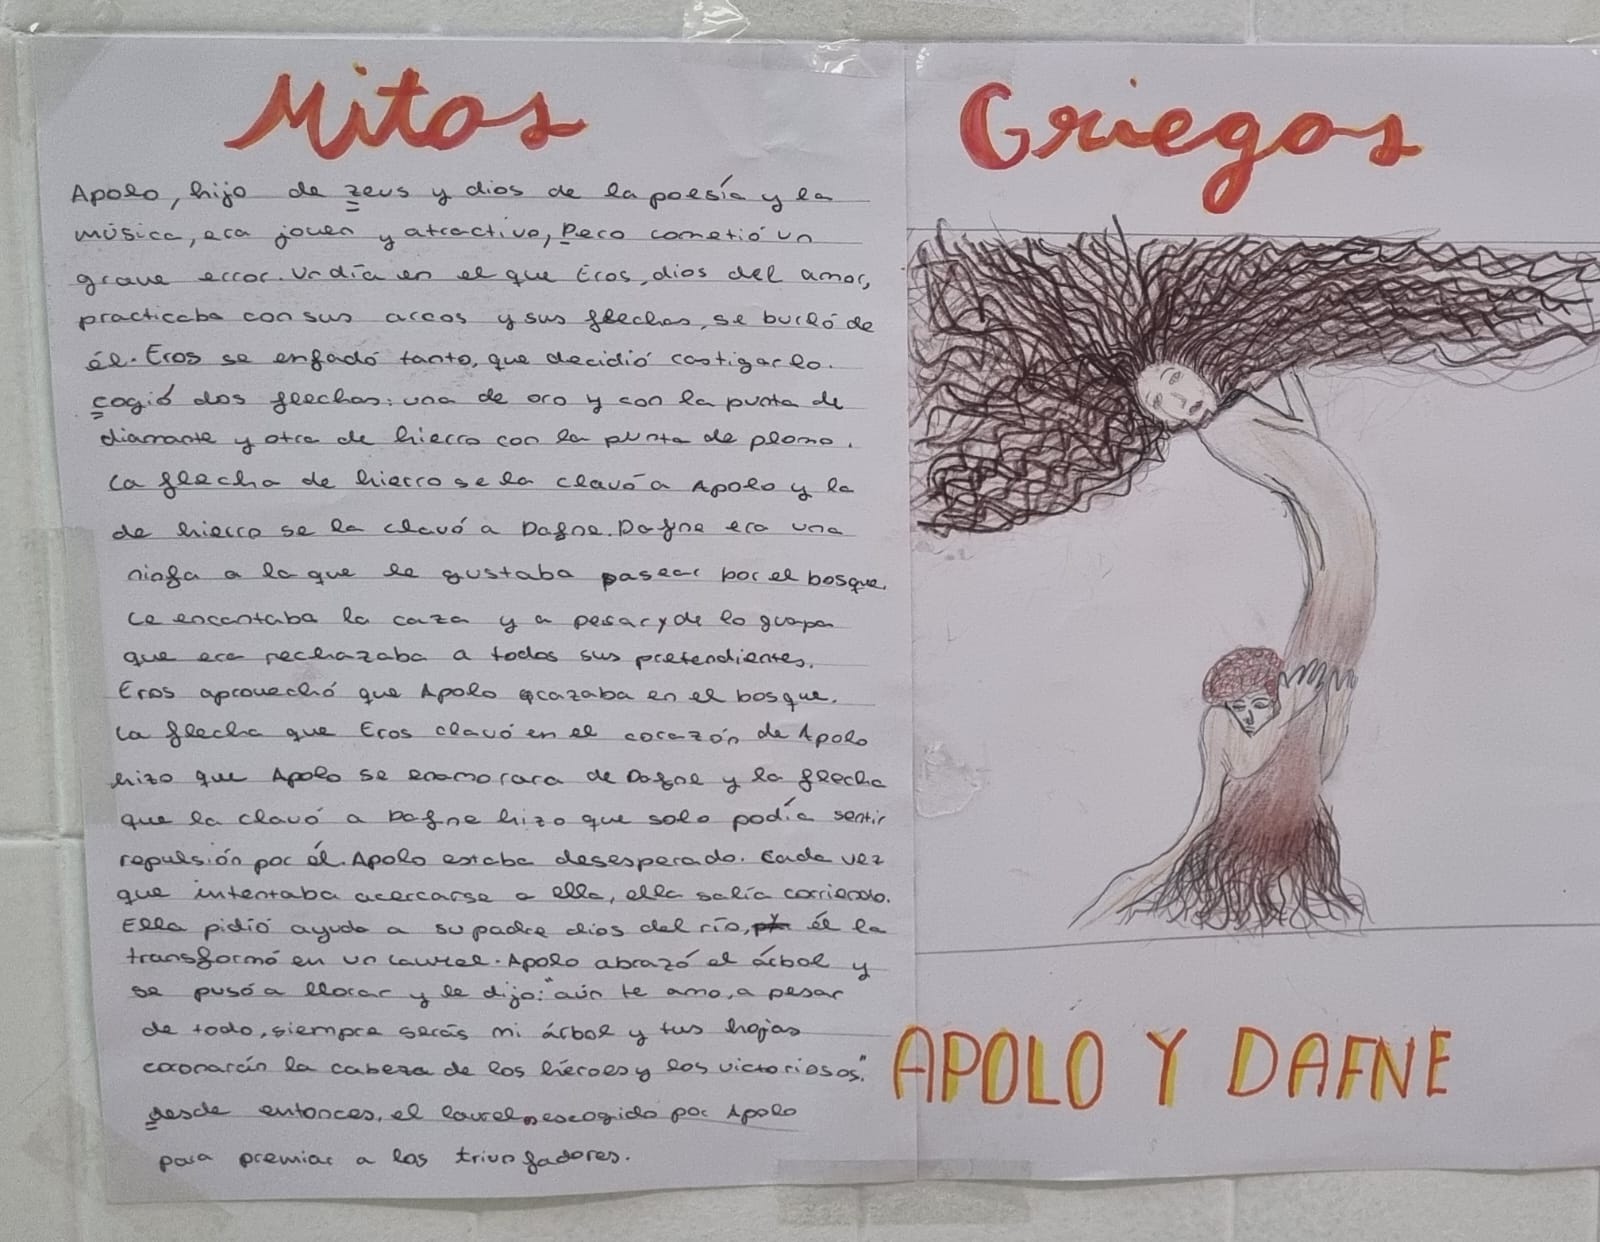 Mitos Griegos
Apolo, hijo de zeus y dios de la poesía y la
música, era joven y atractivo, Pero cometió un
grave error. Un día en el que Eros, dios del amor,
practicaba con sus arcos y sus flechas, se burló de
él. Eros se enfadó tanto, que decidió castigarlo.
cogió dos flechas: una de oro y con la punta de
diamante y otra de hierro con la punta de plomo.
La flecha de hierro se la clavó a Apolo y la
de hierro se la clavó a Dafne. Dafne era una
ninfa a la que le gustaba pasear por el bosque.
Le encantaba la caza y a pesar y de lo guapa
que era rechazaba a todos sus pretendientes.
Eros aprovechó que Apolo cazaba en el bosque.
La flecha que Eros clavó en el corazón de Apolo
hizo que Apolo se enamorara de Dafne y la flecha
que la clavó a Dafne hizo que solo podía sentir
repulsión por él. Apolo estaba desesperado. Cada vez
que intentaba acercarse a ella, ella salía corriendo.
Ella pidió ayuda a su padre dios del río, él la
transformó en un laurel. Apolo abrazó el árbol y
se pusó a llorar y le dijo: "aún te amo, a pesar
de todo, siempre serás mi árbol y tus hojas
coronarán la cabeza de los héroes y los victoriosos."
desde entonces, el laurel, escogido por Apolo
para premiar a los triunfadores.
APOLO Y DAFNE